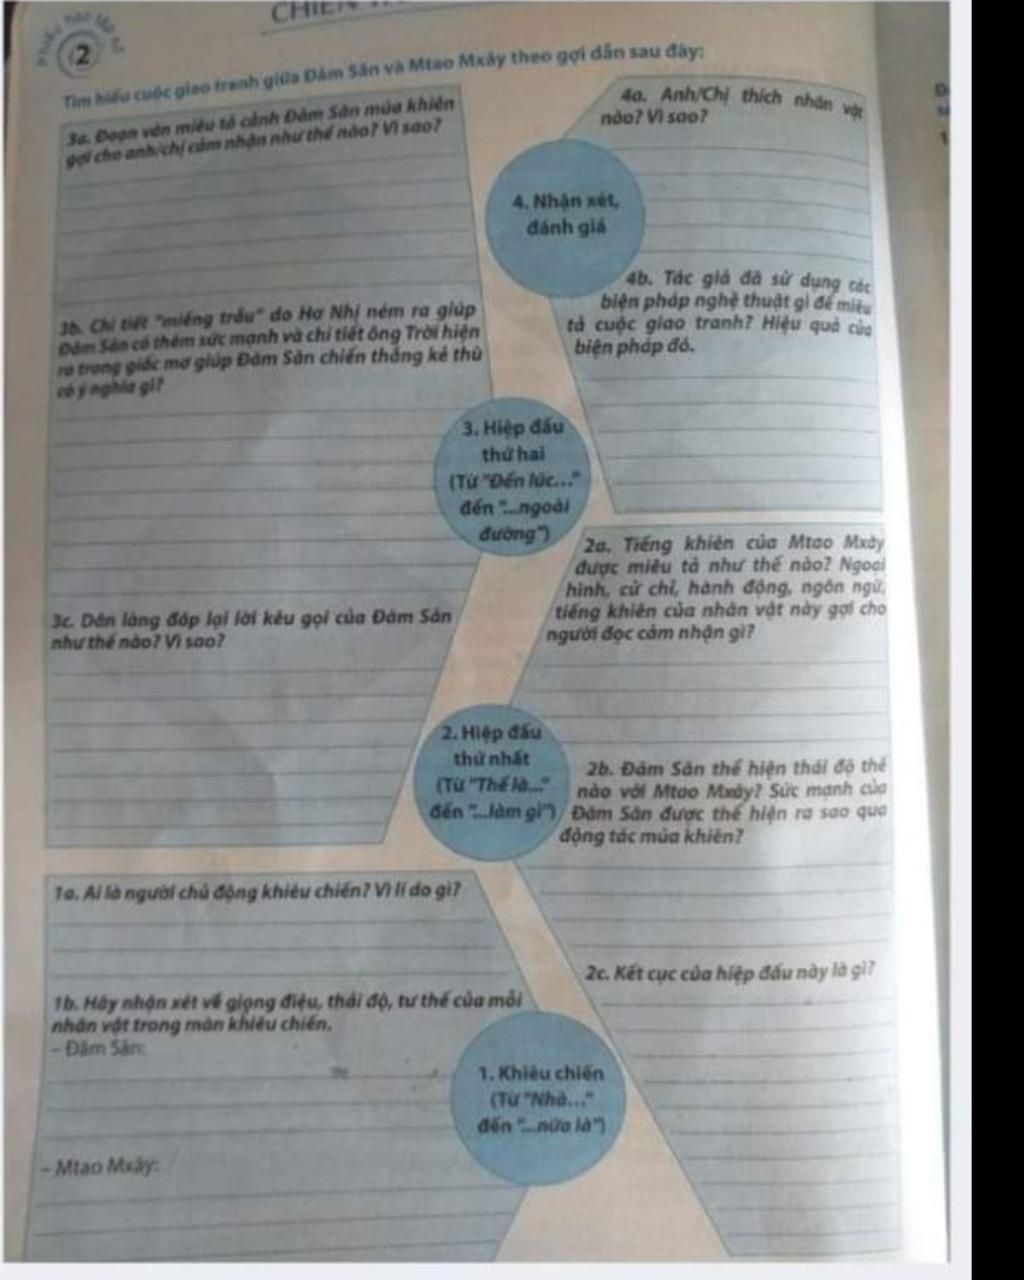 CHIẾN
Phiếu học tập số
2
Tìm hiểu cuộc giao tranh giữa Đăm Săn và Mtao Mxây theo gợi dẫn sau đây:
3a. Đoạn văn miêu tả cảnh Đăm Săn múa khiên
gợi cho anh/chị cảm nhận như thế nào? Vì sao?
4a. Anh/Chị thích nhân vật
nào? Vì sao?
4. Nhận xét,
đánh giá
4b. Tác giả đã sử dụng các
biện pháp nghệ thuật gì để miêu
tả cuộc giao tranh? Hiệu quả của
biện pháp đó.
3b. Chi tiết "miếng trầu" do Hơ Nhị ném ra giúp
Đăm Săn có thêm sức mạnh và chi tiết ông Trời hiện
ra trong giấc mơ giúp Đăm Săn chiến thắng kẻ thù
có ý nghĩa gì?
3. Hiệp đấu
thứ hai
(Từ "Đến lúc..."
đến "...ngoài
đường")
2a. Tiếng khiên của Mtao Mxây
được miêu tả như thế nào? Ngoại
hình, cử chỉ, hành động, ngôn ngữ,
tiếng khiên của nhân vật này gợi cho
người đọc cảm nhận gì?
3c. Dân làng đáp lại lời kêu gọi của Đăm Săn
như thế nào? Vì sao?
2. Hiệp đấu
thứ nhất
(Từ "Thế là..."
đến "...làm gì")
2b. Đăm Săn thể hiện thái độ thế
nào với Mtao Mxây? Sức mạnh của
Đăm Săn được thể hiện ra sao qua
động tác múa khiên?
1a. Ai là người chủ động khiêu chiến? Vì lí do gì?
2c. Kết cục của hiệp đấu này là gì?
1b. Hãy nhận xét về giọng điệu, thái độ, tư thế của mỗi
nhân vật trong màn khiêu chiến.
– Đăm Săn:
1. Khiêu chiến
(Từ "Nhà..."
đến "...nữa là")
– Mtao Mxây: